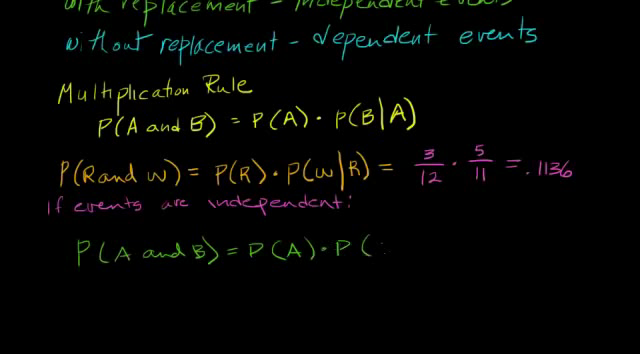 with replacement - independent events
without replacement - dependent events
Multiplication Rule
P(A and B) = P(A) · P(B|A)
P(R and W) = P(R) · P(W|R) = 3/12 · 5/11 = .1136
If events are independent:
P(A and B) = P(A) · P(